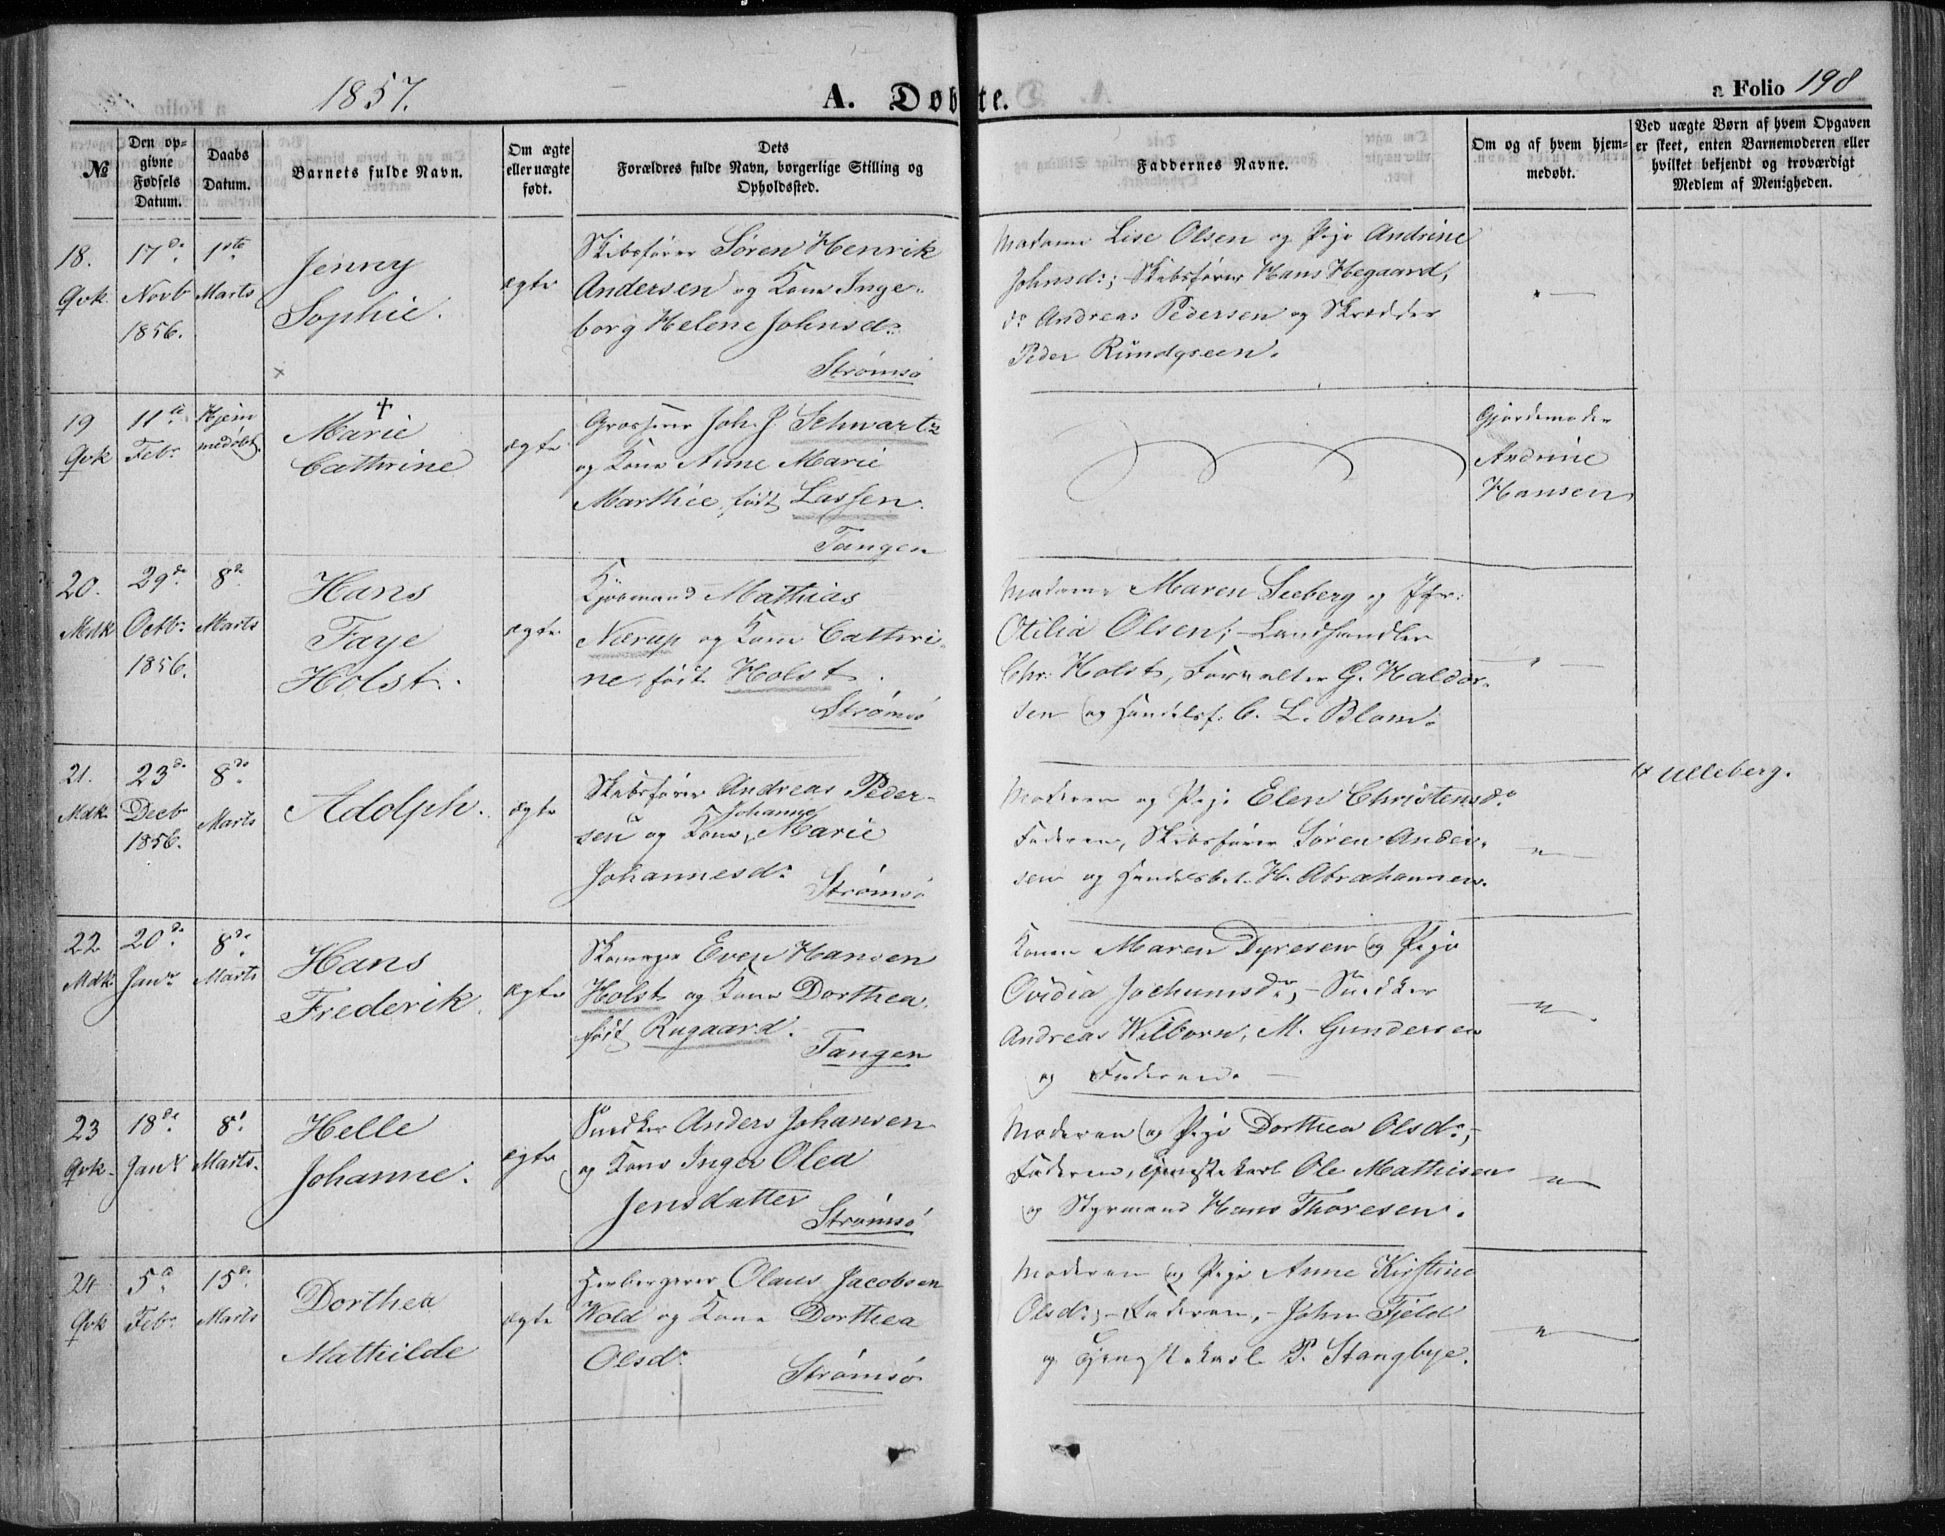 1857.
A. Døbte.
a Folio 198
№
Den op-
givne
Fødsels
Datum.
Daabs
Datum.
Barnets fulde Navn.
Om ægte
eller uægte
født.
Dets
Forældres fulde Navn, borgerlige Stilling og
Opholdssted.
Faddernes Navne.
Om og af hvem hjem-
medøbt.
Ved uægte Børn af hvem Opgaven
er skeet, enten Barnemoderen eller
hvilket bekjendt og troværdigt
Medlem af Menigheden.
18.
Qvk
17de
Novb
1856.
1ste
Marts
Jenny
Sophie.
×
ægte
Skibsfører Søren Henrik
Andersen og Kone Inge-
borg Helene Johnsdr
Strømsø
Madame Lise Olsen og Pige Andrine
Johnsdr; Skibsfører Hans Hegaard,
do Andreas Pedersen og Skrædder
Peder Rundgreen.
" —
19
Qvk
11te
Febr
Hjem
medøbt.
†
Marie
Cathrine
ægte
Grosserer Joh. J. Schwartz
og Kone Anne Marie
Marthie, født Lassen.
Tangen
Gjordemoder
Andrine
Hansen
20.
Mdk
29de
Octbr
1856.
8de
Marts
Hans
Faye
Holst.
ægte
Kjøbmand Mathias
Nærup og Kone Cathri-
ne, født Holst.
Strømsø
Madame Maren Seeberg og Jfr.
Otilia Olsen; – Landhandler
Chr. Holst, Forvalter G. Haldor-
sen og Handelsf. C. L. Blom.
— " —
21.
Mdk.
23de
Decb
1856.
8de
Marts
Adolph.
ægte
Skibsfører Andreas Peder-
sen og Kone, Johanne Marie
Johannesdr
Strømsø
Moderen og Pige Elen Christensdr
Faderen, Skibsfører Søren Ander-
sen og Handelsbet. H. Abrahamsen.
" —
× Ulleberg.
22
Mdk
20de
Janr
8de
Marts
Hans
Frederik.
ægte
Skomager Even Hansen
Holst og Kone Dorthea,
født Rugaard.
Tangen
Konen Maren Dyresen og Pige
Ovidia Jochumsdr, – Snedker
Andreas Wilborn, M. Gundersen
og Faderen. —
— " —
23
Qvk.
18de
Janr
8de
Marts.
Helle
Johanne.
ægte
Snedker Anders Johansen
og Kone Inger Olea
Jensdatter
Strømsø
Moderen og Pige Dorthea Olsdr, –
Faderen, Tjenestekarl Ole Mathisen
og Styrmand Hans Thoresen.
— " —
24
Qvk
5te
Febr
15de
Marts
Dorthea
Mathilde
ægte
Herbergerer Olaus Jacobsen
Wold og Kone Dorthea
Olsdr
Strømsø
Moderen og Pige Anne Kirstine
Olsdr; – Faderen, – John Fjeld
og Tjenestekarl P. Stangbye.
— " —